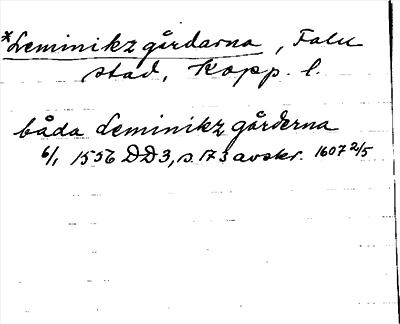 *Leminikzgårdarna, Falu
stad, Kopp. l.
båda Leminikzgårderna
6/1 1556 DD3, s. 173 avskr. 1607 2/5